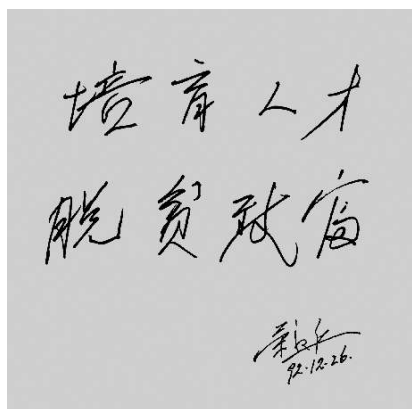 培育人才
脱贫致富
荣毅仁
92.12.26.